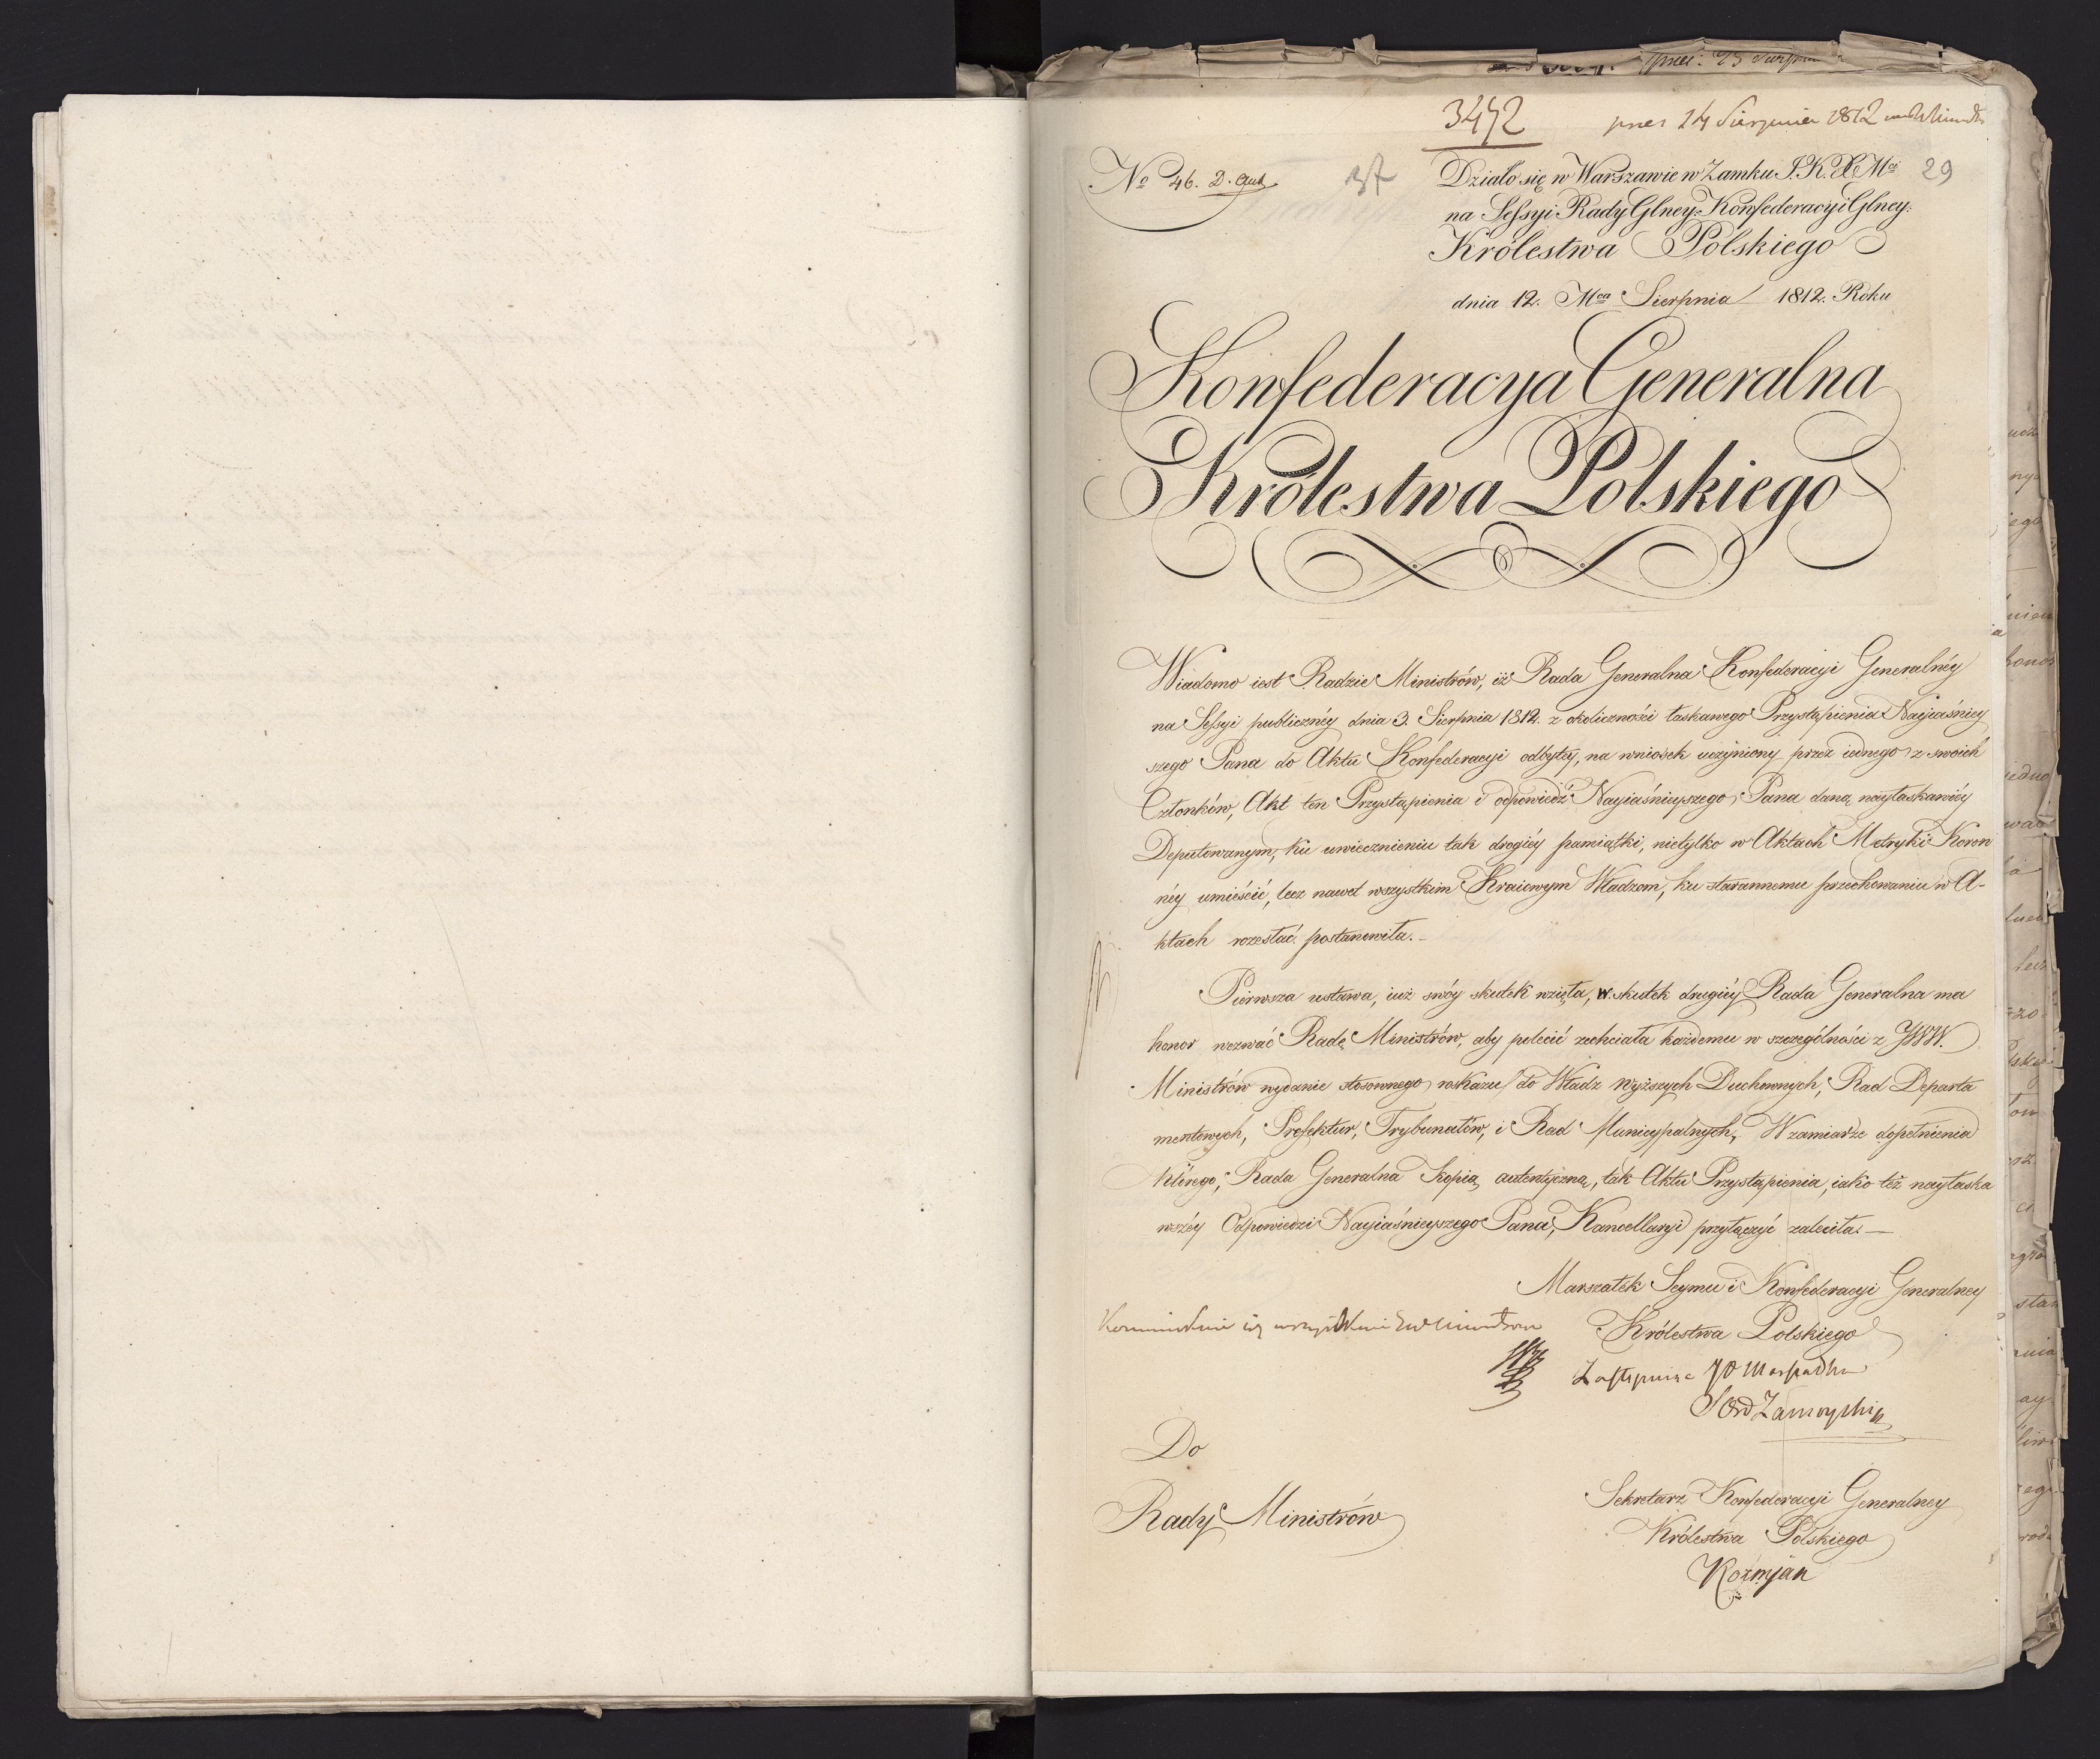 3452
pres 24 Sierpnia 1812
No 46. D. Gub.
37
29
Działo się w Warszawie w Zamku J. K. X Mci
na Sessyi Rady Glney. Konfederacyi Glney:
Królestwa Polskiego
dnia 12. Mca Sierpnia 1812. Roku
Konfederacya Generalna
Królestwa Polskiego
Wiadomo iest Radzie Ministrów, iż Rada Generalna Konfederacyi Generalnéy
na Sessyi publicznéy dnia 3. Sierpnia 1812. z okoliczności łaskawego Przystąpienia Nayiaśniey
szego Pana do Aktu Konfederacyi odbytéy, na wniosek uczyniony przez iednego z swoich
Członków, Akt ten Przystąpienia i odpowiedź Nayiaśnieyszego Pana daną nayłaskawiéy
Deputowanym, ku uwiecznieniu tak drogiéy pamiątki, nietylko w Aktach Metryki Koron
néy umieścić, lecz nawet wszystkim Kraiowym Władzom, ku starannemu przechowaniu w A-
ktach rozesłać postanowiła.
Pierwsza ustawa, iuż swóy skutek wzięła, w skutek drugiéy Rada Generalna ma
honor wezwać Radę Ministrów, aby polecić zechciała każdemu w szczególności z JWW.
Ministrów wydanie stosownego roskazu do Władz wyższych Duchownych, Rad Departa
mentowych, Prefektur, Trybunałów, i Rad Municypalnych, W zamiarze dopełnienia
którego, Rada Generalna Kopią autentyczną, tak Aktu Przystąpienia, iako też nayłaska
wszéy Odpowiedzi Nayiaśnieyszego Pana, Kancellaryi przyłączyć zaleciła.—
Marszałek Seymu i Konfederacyi Generalney
Królestwa Polskiego
Zastępuiąc JO Marszałka
S Ord Zamoyski
Do
Rady Ministrów
Sekretarz Konfederacyi Generalney
Królestwa Polskiego
Koźmjan